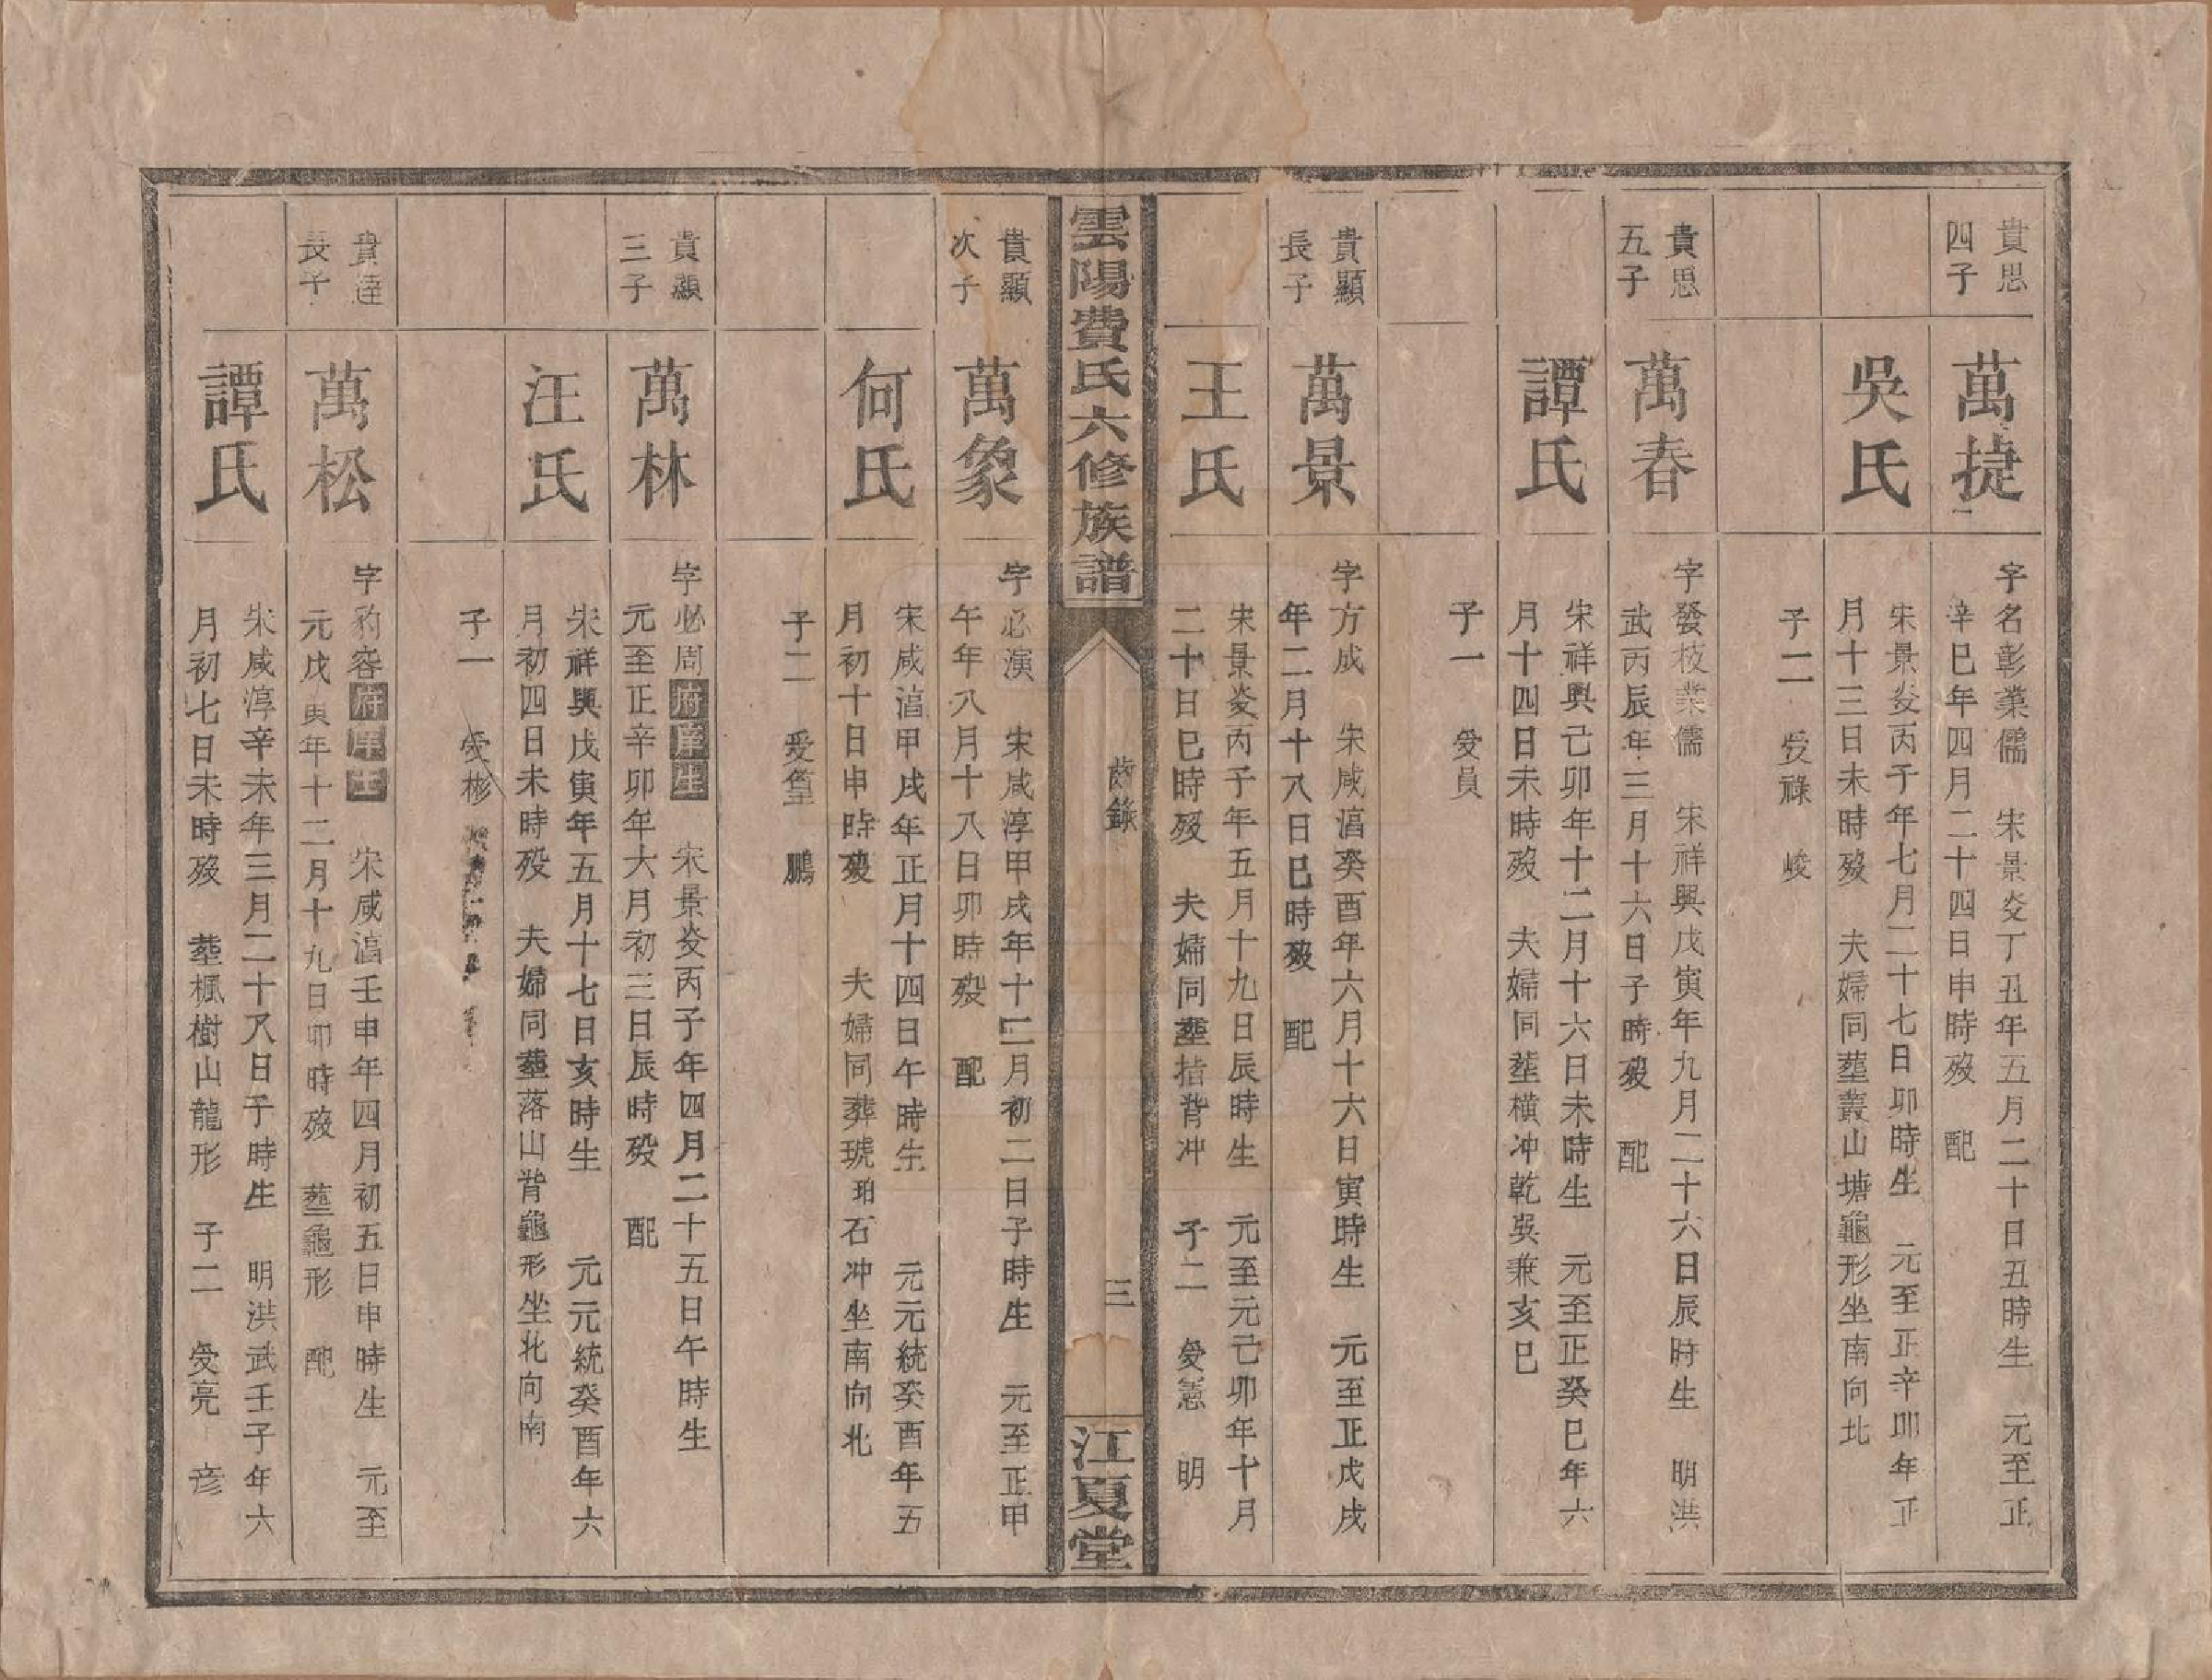 貴思
四子
萬捷
字名彰業儒　宋景炎丁丑年五月二十日丑時生　元至正
辛巳年四月二十四日申時歿　配
吳氏
宋景炎丙子年七月二十七日卯時生　元至正辛卯年正
月十三日未時歿　夫婦同塟叢山塘龜形坐南向北
子二　受祿　峻
貴思
五子
萬春
字發枝業儒　宋祥興戊寅年九月二十六日辰時生　明洪
武丙辰年三月十六日子時歿　配
譚氏
宋祥興己卯年十二月十六日未時生　元至正癸巳年六
月十四日未時歿　夫婦同塟橫冲乾巽兼亥巳
子一　受員
貴顯
長子
萬景
字方成　宋咸湻癸酉年六月十六日寅時生　元至正戊戌
年二月十八日巳時歿　配
王氏
宋景炎丙子年五月十九日辰時生　元至元己卯年十月
二十日巳時歿　夫婦同塟掿背冲　子二　受憲　明
雲陽費氏六修族譜
齒錄
三
江夏堂
貴顯
次子
萬象
字必演　宋咸淳甲戌年十二月初二日子時生　元至正甲
午年八月十八日卯時歿　配
何氏
宋咸湻甲戌年正月十四日午時生　元元統癸酉年五
月初十日申時歿　夫婦同葬琥珀石冲坐南向北
子二　受篁　鵬
貴顯
三子
萬林
字必周府庠生　宋景炎丙子年四月二十五日午時生
元至正辛卯年六月初三日辰時歿　配
汪氏
宋祥興戊寅年五月十七日亥時生　元元統癸酉年六
月初四日未時歿　夫婦同塟落山背龜形坐北向南
子一　受彬
貴達
長子
萬松
字秀容府庠生　宋咸湻壬申年四月初五日申時生　元至
元戊寅年十二月十九日卯時歿　塟龜形　配
譚氏
宋咸淳辛未年三月二十八日子時生　明洪武壬子年六
月初七日未時歿　塟楓樹山龍形　子二　受亮　彦